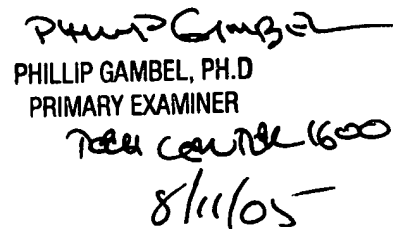 Phillip Gambel
PHILLIP GAMBEL, PH.D
PRIMARY EXAMINER
Tech Center 1600
8/11/05